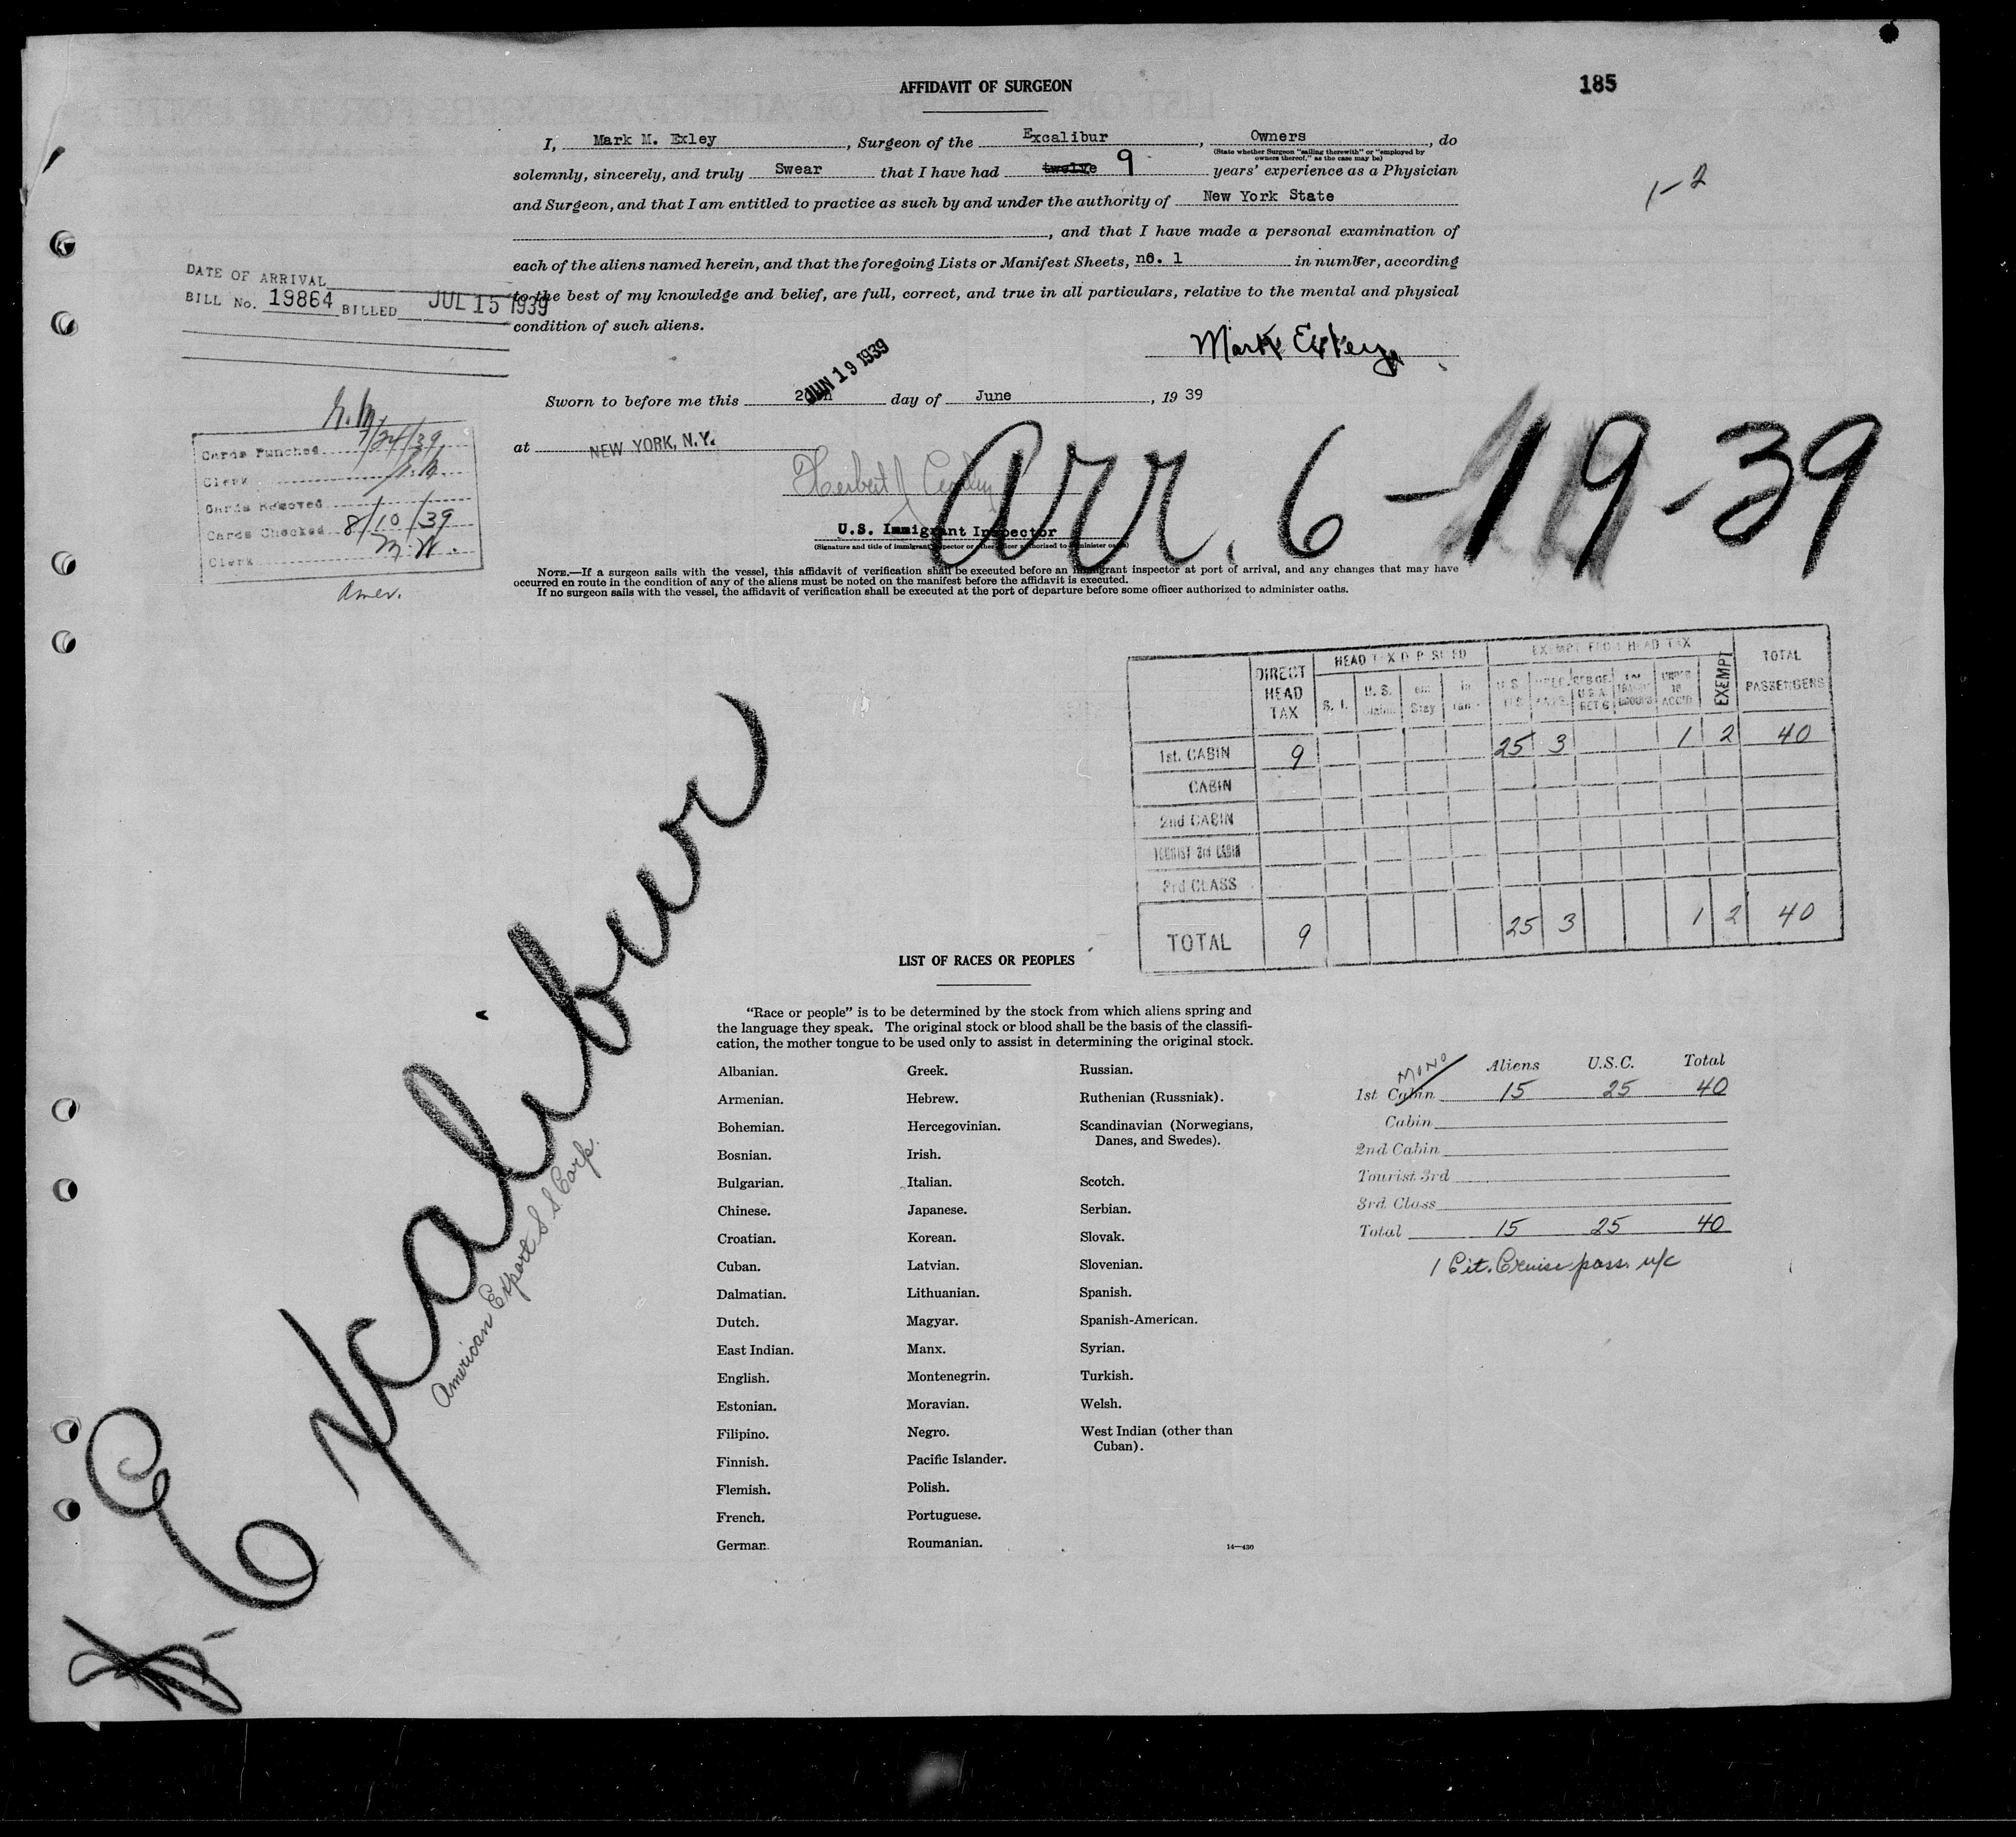 AFFIDAVIT OF SURGEON
185
I, Mark M. Exley, Surgeon of the Excalibur, Owners, do
(State whether Surgeon "sailing therewith" or "employed by
owners thereof," as the case may be)
solemnly, sincerely, and truly Swear that I have had twelve 9 years' experience as a Physician
1-2
and Surgeon, and that I am entitled to practice as such by and under the authority of New York State
, and that I have made a personal examination of
each of the aliens named herein, and that the foregoing Lists or Manifest Sheets, no. 1 in number, according
to the best of my knowledge and belief, are full, correct, and true in all particulars, relative to the mental and physical
condition of such aliens.
DATE OF ARRIVAL
BILL No. 19864 BILLED JUL 15 1939
Mark Exley
JUN 19 1939
Sworn to before me this day of June, 1939
at NEW YORK, N.Y.
Herbert J.
U.S. Immigrant Inspector
(Signature and title of immigrant inspector or other officer authorized to administer oaths)
Arr. 6-19-39
Cards Punched 7/24/39
Clerk
Cards Removed
Cards Checked 8/10/39
Clerk M.W.
Amer.
NOTE.—If a surgeon sails with the vessel, this affidavit of verification shall be executed before an immigrant inspector at port of arrival, and any changes that may have
occurred en route in the condition of any of the aliens must be noted on the manifest before the affidavit is executed.
If no surgeon sails with the vessel, the affidavit of verification shall be executed at the port of departure before some officer authorized to administer oaths.
DIRECT HEAD TAX
HEAD TAX DEPOSITED
EXEMPT FROM HEAD TAX
EXEMPT
TOTAL PASSENGERS
S. I.
U. S.
Stay
1st. CABIN 9 25 3 1 2 40
CABIN
2nd CABIN
TOURIST 3rd CABIN
3rd CLASS
TOTAL 9 25 3 1 2 40
Excalibur
American Export S.S. Corp.
LIST OF RACES OR PEOPLES
"Race or people" is to be determined by the stock from which aliens spring and
the language they speak. The original stock or blood shall be the basis of the classifi-
cation, the mother tongue to be used only to assist in determining the original stock.
Albanian.
Armenian.
Bohemian.
Bosnian.
Bulgarian.
Chinese.
Croatian.
Cuban.
Dalmatian.
Dutch.
East Indian.
English.
Estonian.
Filipino.
Finnish.
Flemish.
French.
German.
Greek.
Hebrew.
Hercegovinian.
Irish.
Italian.
Japanese.
Korean.
Latvian.
Lithuanian.
Magyar.
Manx.
Montenegrin.
Moravian.
Negro.
Pacific Islander.
Polish.
Portuguese.
Roumanian.
Russian.
Ruthenian (Russniak).
Scandinavian (Norwegians,
Danes, and Swedes).
Scotch.
Serbian.
Slovak.
Slovenian.
Spanish.
Spanish-American.
Syrian.
Turkish.
Welsh.
West Indian (other than
Cuban).
14—430
Aliens U.S.C. Total
MONO
1st Cabin 15 25 40
Cabin
2nd Cabin
Tourist 3rd
3rd Class
Total 15 25 40
1 Cit. Cruise pass. u/c